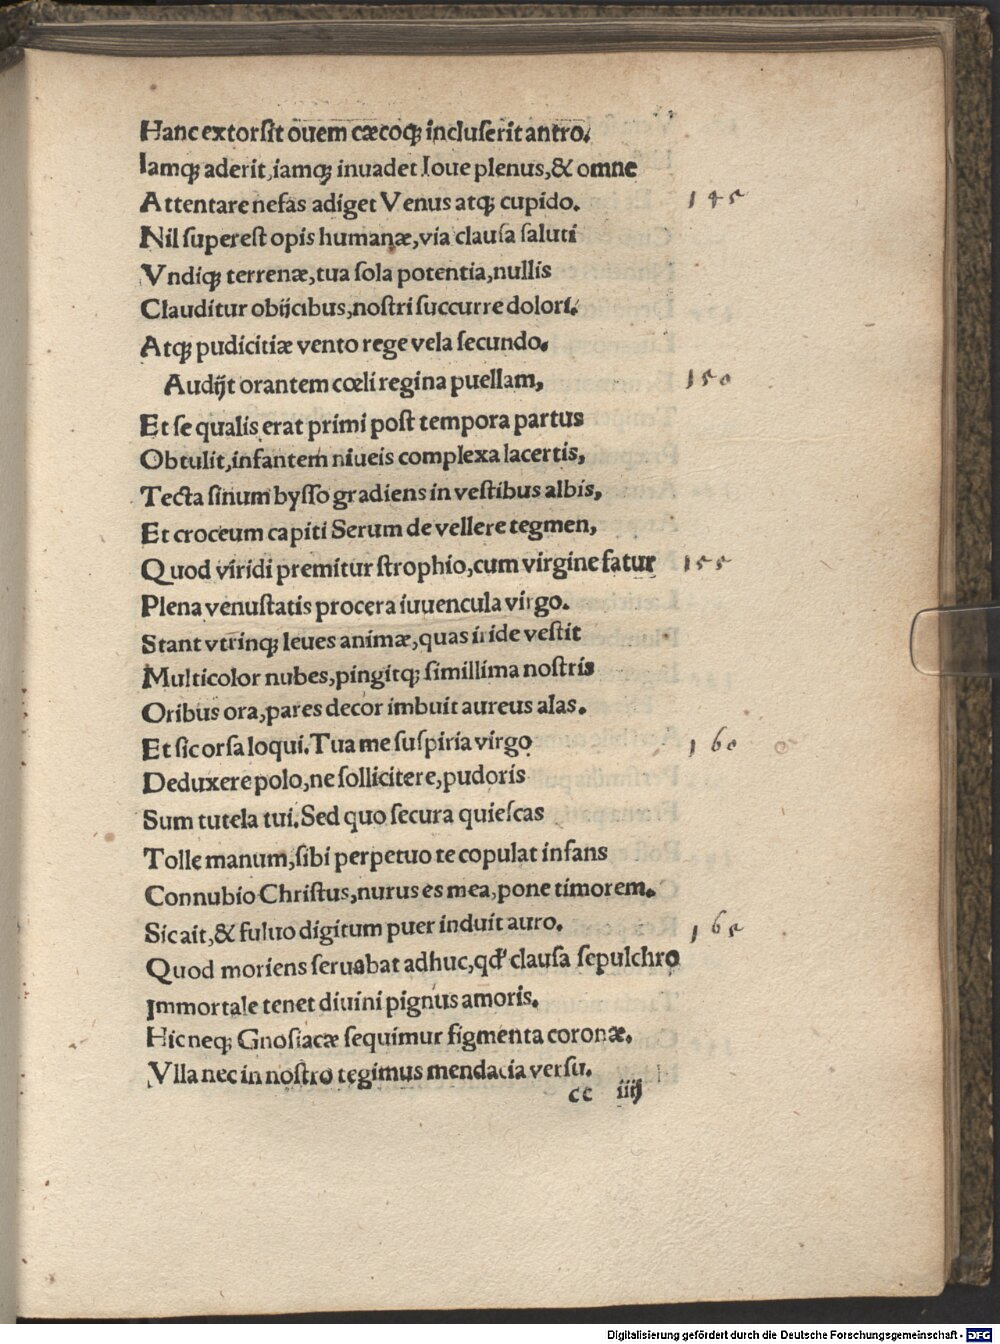 Hanc extorsit ouem cæcoq; incluserit antro.
Iamq; aderit, iamq; inuadet Ioue plenus, & omne
Attentare nefas adiget Venus atq; cupido. 145
Nil superest opis humanæ, via clausa saluti
Vndiq; terrenæ, tua sola potentia, nullis
Clauditur obijcibus, nostri succurre dolori.
Atq; pudicitiæ vento rege vela secundo.
Audijt orantem cœli regina puellam, 150
Et se qualis erat primi post tempora partus
Obtulit, infantem niueis complexa lacertis,
Tecta sinum bysso gradiens in vestibus albis,
Et croceum capiti Serum de vellere tegmen,
Quod viridi premitur strophio, cum virgine fatur 155
Plena venustatis procera iuuencula virgo.
Stant vtrinq; leues animæ, quas iride vestit
Multicolor nubes, pingitq; simillima nostris
Oribus ora, pares decor imbuit aureus alas.
Et sic orsa loqui. Tua me suspiria virgo 160
Deduxere polo, ne sollicitere, pudoris
Sum tutela tui. Sed quo secura quiescas
Tolle manum, sibi perpetuo te copulat infans
Connubio Christus, nurus es mea, pone timorem.
Sic ait, & fuluo digitum puer induit auro. 165
Quod moriens seruabat adhuc, qđ clausa sepulchro
Immortale tenet diuini pignus amoris.
Hic neq; Gnosiacæ sequimur figmenta coronæ.
Vlla nec in nostro tegimus mendacia versu.
cc iiij
Digitalisierung gefördert durch die Deutsche Forschungsgemeinschaft - DFG